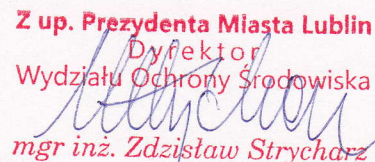 Z up. Prezydenta Miasta Lublin
Dyrektor
Wydziału Ochrony Środowiska
mgr inż. Zdzisław Strycharz